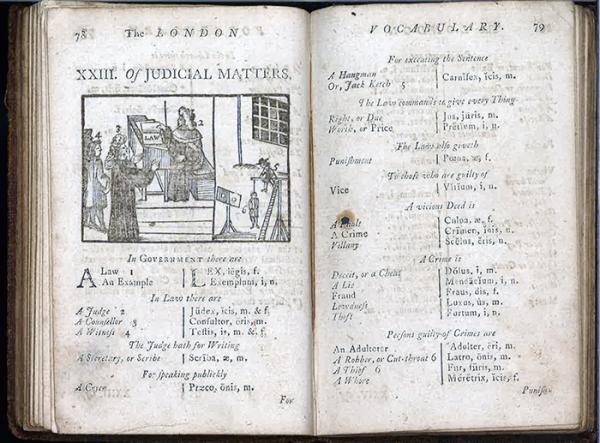 78 The LONDON
XXIII. Of JUDICIAL MATTERS.
3
2
LAW
In GOVERNMENT there are
A Law 1 LEX, lēgis, f.
An Example Exemplum, i, n.
In Law there are
A Judge 2 Jūdex, ĭcis, m. & f.
A Counsellor 3 Consultor, ōris, m.
A Witness 4 Testis, is, m. & f.
The Judge hath for Writing
A Secretary, or Scribe Scrība, æ, m.
For speaking publickly
A Cryer Præco, ōnis, m.
For
VOCABULARY. 79
For executing the Sentence
A Hangman
Or, Jack Ketch 5 Carnĭfex, ĭcis, m.
The Law commands to give every Thing
Right, or Due Jus, jūris, m.
Worth, or Price Prĕtium, i, n.
The Law also giveth
Punishment Pœna, æ, f.
To those who are guilty of
Vice Vĭtium, i, n.
A vicious Deed is
A Fault Culpa, æ, f.
A Crime Crīmen, ĭnis, n.
Villany Scĕlus, ĕris, n.
A Crime is
Deceit, or a Cheat Dŏlus, i, m.
A Lie Mendācium, i, n.
Fraud Fraus, dis, f.
Lewdness Luxus, ûs, m.
Theft Furtum, i, n.
Persons guilty of Crimes are
An Adulterer Adulter, ĕri, m.
A Robber, or Cut-throat 6 Latro, ōnis, m.
A Thief 6 Fur, fūris, m.
A Whore Mĕrĕtrix, īcis, f.
Punish-